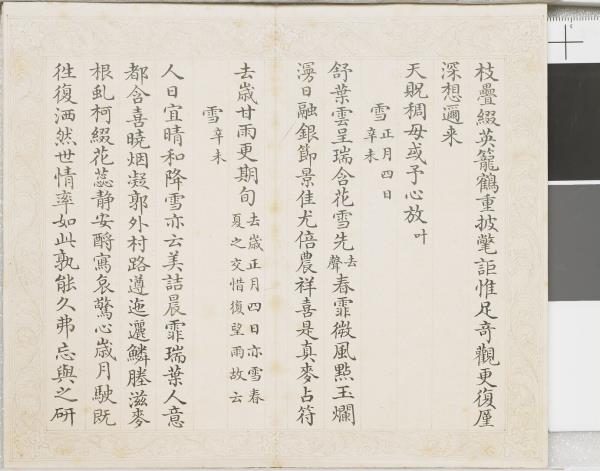 枝疊綴英籠鶴重披氅詎惟足竒觀更復厪
深想邇来
天貺稠毋或予心放叶
雪 正月四日 辛未
舒葉雲呈瑞含花雪先去聲春霏微風點玉爛
漫日融銀節景佳尤倍農祥喜是真麥占符
去歲甘雨更期旬 去歲正月四日亦雪春
夏之交惜復望雨故云
雪 辛未
人日宜晴和降雪亦云美詰晨霏瑞葉人意
都含喜曉烟凝郭外村路遵迤邐鱗塍滋麥
根虬柯綴花蕊静安酹寫哀驚心歳月駛既
徃復洒然世情率如此孰能久弗忘與之研